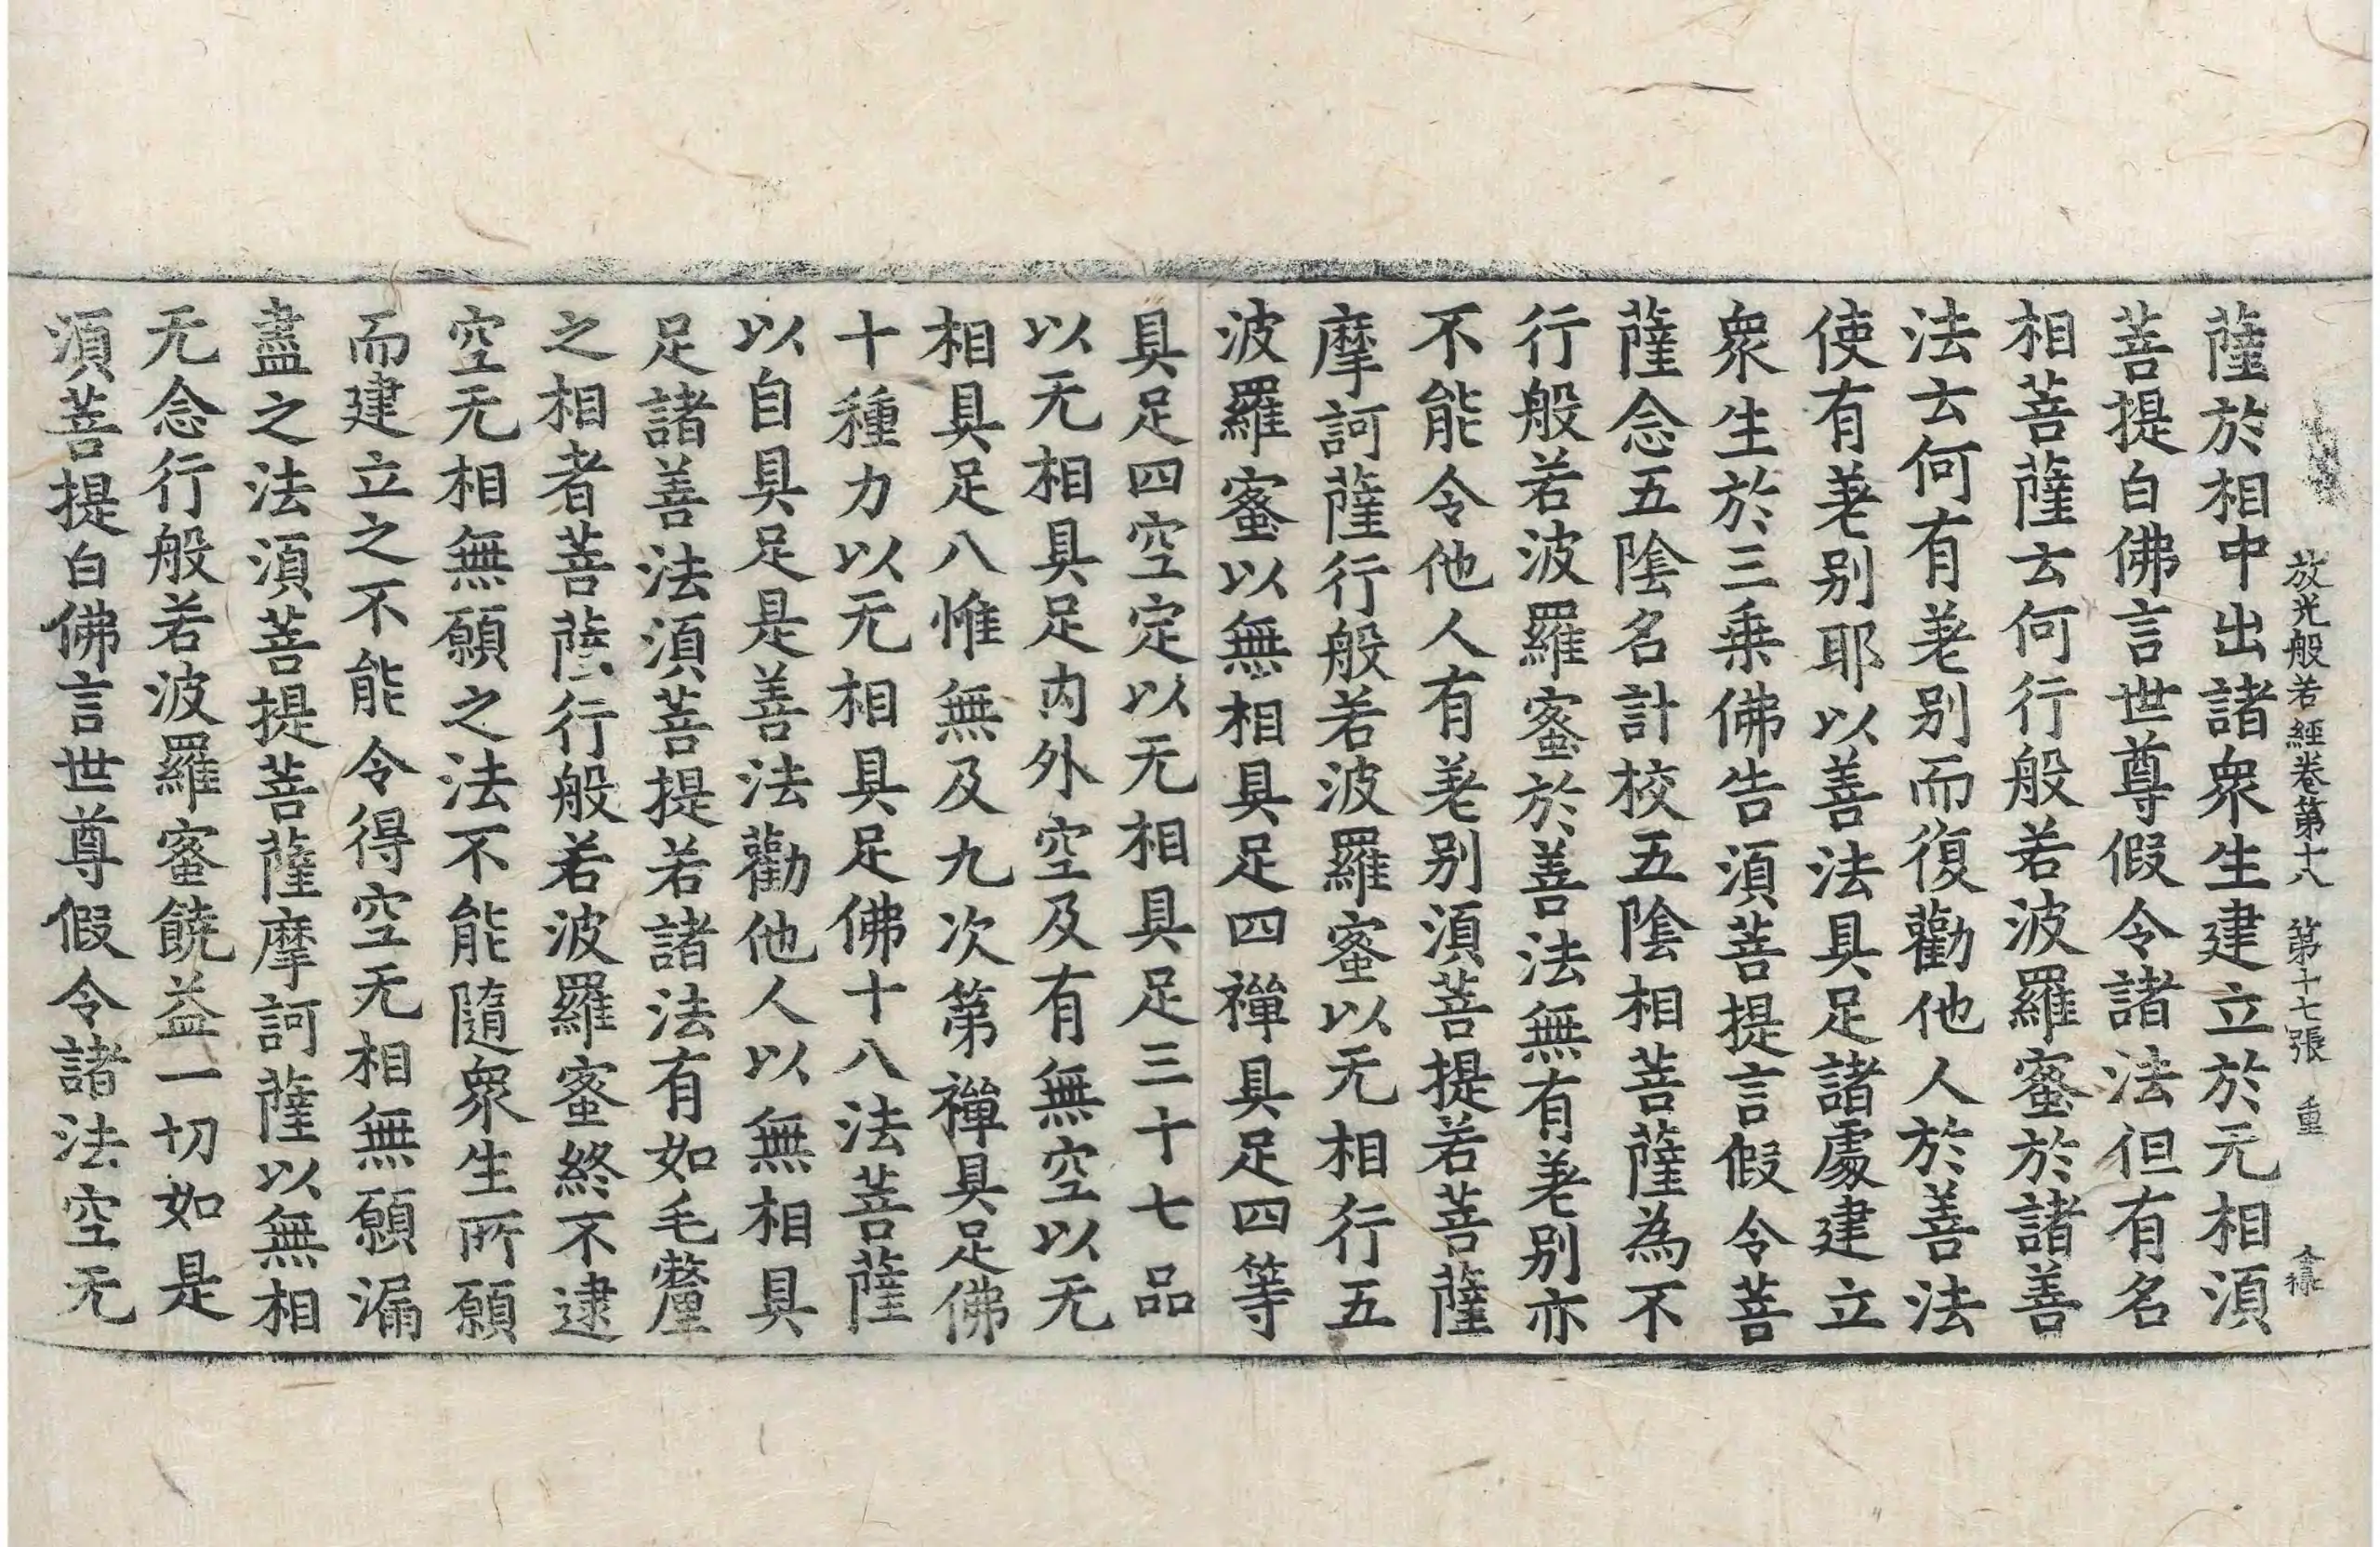 放光般若經卷第十八　第十七張　重
薩於相中出諸衆生建立於无相湏
菩提白佛言世尊假令諸法但有名
相菩薩云何行般若波羅蜜於諸善
法云何有差别而復勸他人於善法
使有差别耶以善法具足諸處建立
衆生於三乗佛告湏菩提言假令菩
薩念五陰名計校五陰相菩薩為不
行般若波羅蜜於善法無有差别亦
不能令他人有差别湏菩提若菩薩
摩訶薩行般若波羅蜜以无相行五
波羅蜜以無相具足四禪具足四等
具足四空定以无相具足三十七品
以无相具足内外空及有無空以无
相具足八惟無及九次第禪具足佛
十種力以无相具足佛十八法菩薩
以自具足是善法勸他人以無相具
足諸善法湏菩提若諸法有如毛氂
之相者菩薩行般若波羅蜜終不逮
空无相無願之法不能隨衆生所願
而建立之不能令得空无相無願漏
盡之法湏菩提菩薩摩訶薩以無相
无念行般若波羅蜜饒益一切如是
湏菩提白佛言世尊假令諸法空无